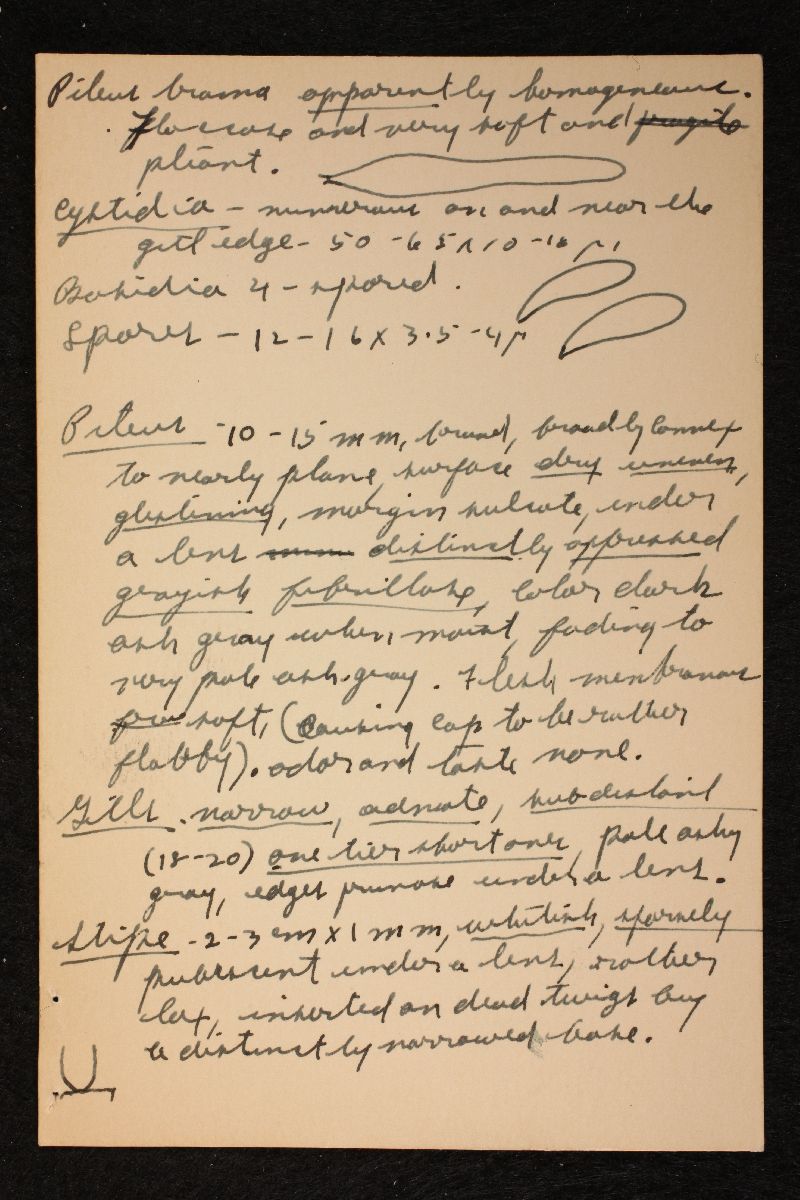 Pileus trama apparently homogeneous.
floccose and very soft and fragile
pliant.
Cystidia - numerous on and near the
gill edge - 50-65 x 10-16 μ.
Basidia 4-spored.
Spores - 12-16 x 3.5-4 μ
Pileus - 10-15 mm, broad, broadly convex
to nearly plane, surface dry uneven,
glistening, margin sulcate, under
a lens distinctly appressed
grayish fibrillose, color dark
ash gray when moist, fading to
very pale ash-gray. Flesh membranous
soft, (causing cap to be rather
flabby). odor and taste none.
Gills. narrow, adnate, subdistant
(18-20) one tier short ones, pale ashy
gray, edges pruinose under a lens.
Stipe - 2-3 cm x 1 mm, whitish, sparsely
pubescent under a lens, rather
lax, inserted on dead twigs by
a distinctly narrowed base.